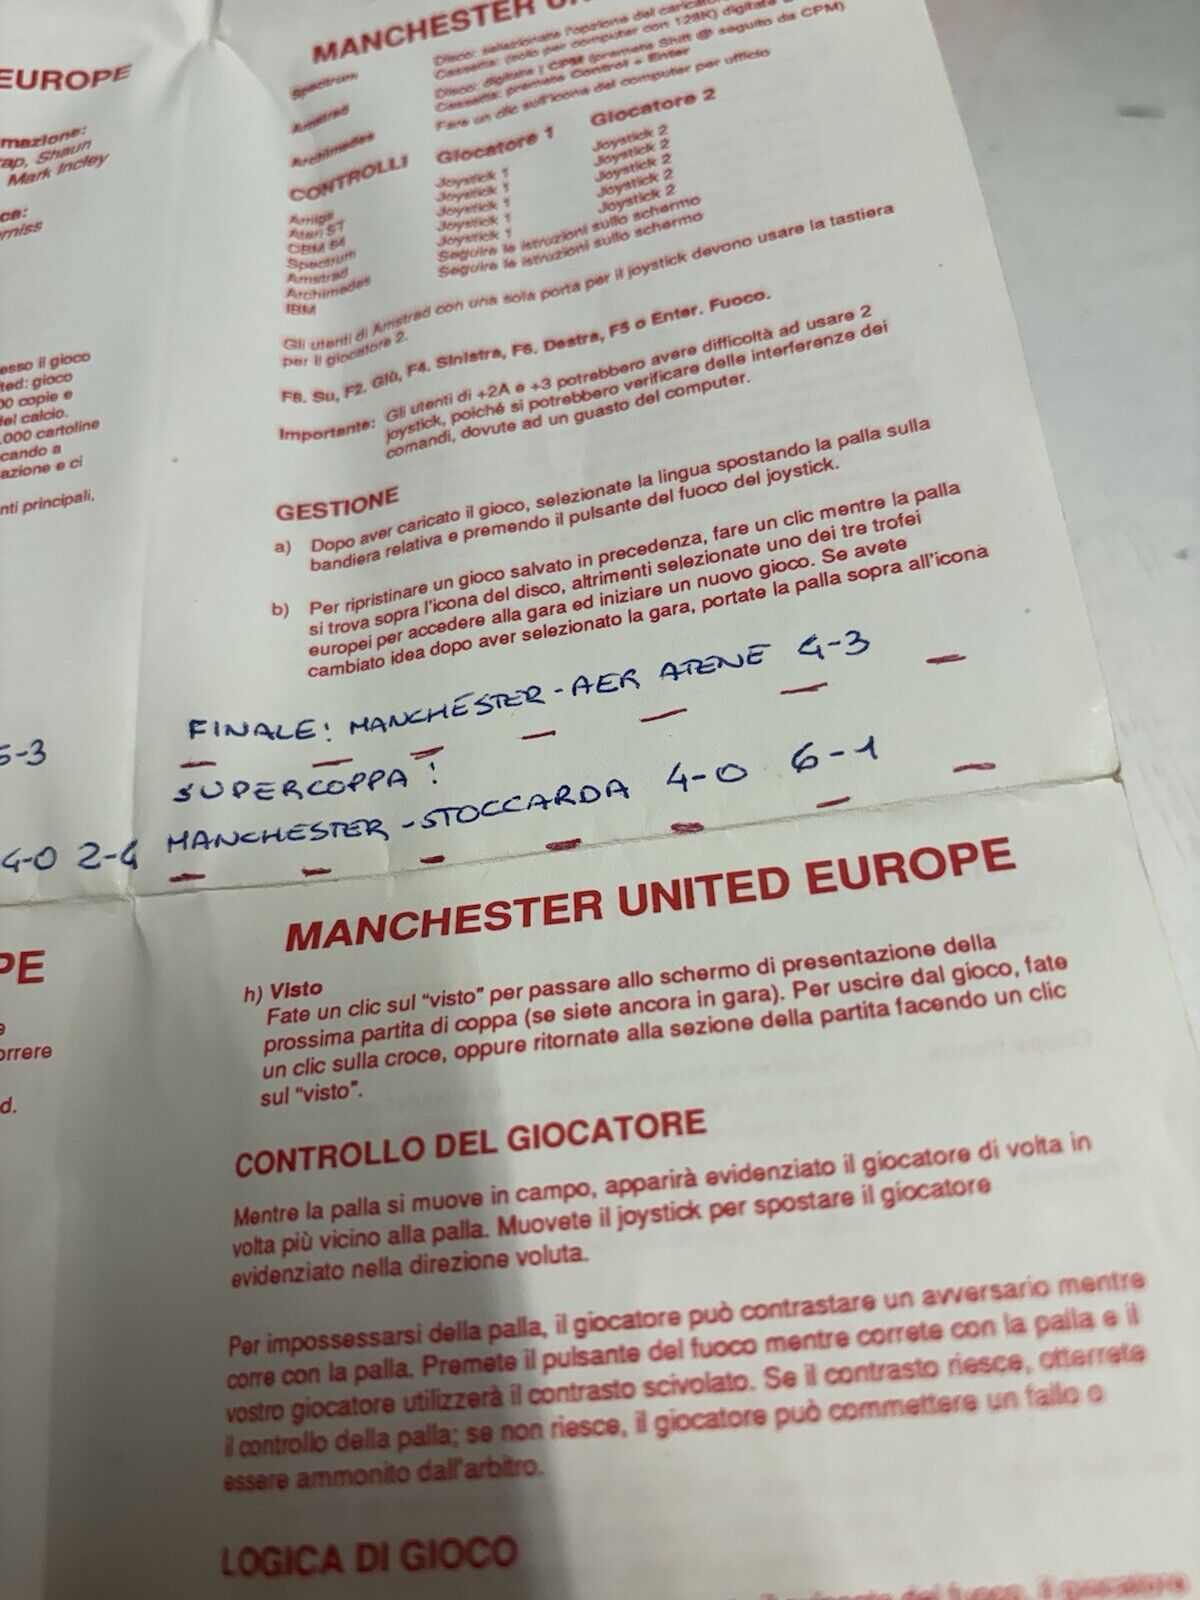 EUROPE
mazione:
rap, Shaun
Mark Incley
ca:
rniss
esso il gioco
ted: gioco
00 copie e
del calcio.
.000 cartoline
cando a
azione e ci
nti principali,
5-3
4-0 2-4
MANCHESTER
Spectrum
Disco: selezionate l'opzione del
Cassetta: (solo per computer con 128K) digitate
Amstrad
Disco: digitate | CPM (premete Shift @ seguito da CPM)
Cassetta: premete Control + Enter
Archimedes
Fare un clic sull'icona del computer per ufficio
CONTROLLI Giocatore 1 Giocatore 2
Amiga Joystick 1 Joystick 2
Atari ST Joystick 1 Joystick 2
CBM 64 Joystick 1 Joystick 2
Spectrum Joystick 1 Joystick 2
Amstrad Joystick 1 Joystick 2
Archimedes Seguire le istruzioni sullo schermo
IBM Seguire le istruzioni sullo schermo
Gli utenti di Amstrad con una sola porta per il joystick devono usare la tastiera
per il giocatore 2.
F8. Su, F2. Giù, F4. Sinistra, F6. Destra, F5 o Enter. Fuoco.
Importante: Gli utenti di +2A e +3 potrebbero avere difficoltà ad usare 2
joystick, poiché si potrebbero verificare delle interferenze dei
comandi, dovute ad un guasto del computer.
GESTIONE
a) Dopo aver caricato il gioco, selezionate la lingua spostando la palla sulla
bandiera relativa e premendo il pulsante del fuoco del joystick.
b) Per ripristinare un gioco salvato in precedenza, fare un clic mentre la palla
si trova sopra l'icona del disco, altrimenti selezionate uno dei tre trofei
europei per accedere alla gara ed iniziare un nuovo gioco. Se avete
cambiato idea dopo aver selezionato la gara, portate la palla sopra all'icona
FINALE: MANCHESTER-AEK ATENE 4-3
SUPERCOPPA:
MANCHESTER-STOCCARDA 4-0 6-1
PE
orrere
d.
MANCHESTER UNITED EUROPE
h) Visto
Fate un clic sul "visto" per passare allo schermo di presentazione della
prossima partita di coppa (se siete ancora in gara). Per uscire dal gioco, fate
un clic sulla croce, oppure ritornate alla sezione della partita facendo un clic
sul "visto".
CONTROLLO DEL GIOCATORE
Mentre la palla si muove in campo, apparirà evidenziato il giocatore di volta in
volta più vicino alla palla. Muovete il joystick per spostare il giocatore
evidenziato nella direzione voluta.
Per impossessarsi della palla, il giocatore può contrastare un avversario mentre
corre con la palla. Premete il pulsante del fuoco mentre correte con la palla e il
vostro giocatore utilizzerà il contrasto scivolato. Se il contrasto riesce, otterrete
il controllo della palla; se non riesce, il giocatore può commettere un fallo o
essere ammonito dall'arbitro.
LOGICA DI GIOCO